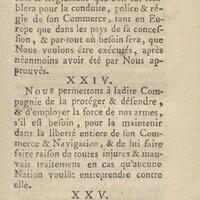 blera pour la conduite, police & ré-
gie de son Commerce, tant en Eu-
rope que dans les pays de sa conces-
sion, & par-tout où besoin sera, que
Nous voulons être exécutés, après
néanmoins avoir été par Nous ap-
prouvés.
XXIV.
Nous permettons à ladite Com-
pagnie de la protéger & défendre,
& d'employer la force de nos armes,
s'il est besoin, pour la maintenir
dans la liberté entiere de son Com-
merce & Navigation, & de lui faire
faire raison de toutes injures & mau-
vais traitemens en cas qu'aucune
Nation voulût entreprendre contre
elle.
XXV.